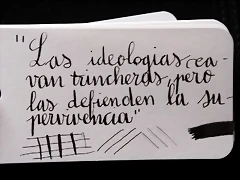 "Las ideologías ca-
van trincheras, pero
las defienden la su-
pervivencia"